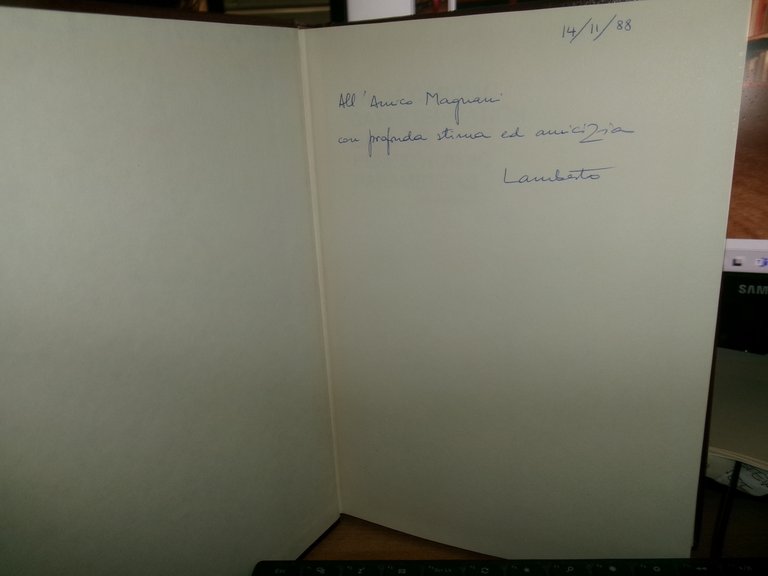 14/11/88
All'Amico Magnani
con profonda stima ed amicizia
Lamberto
SAM